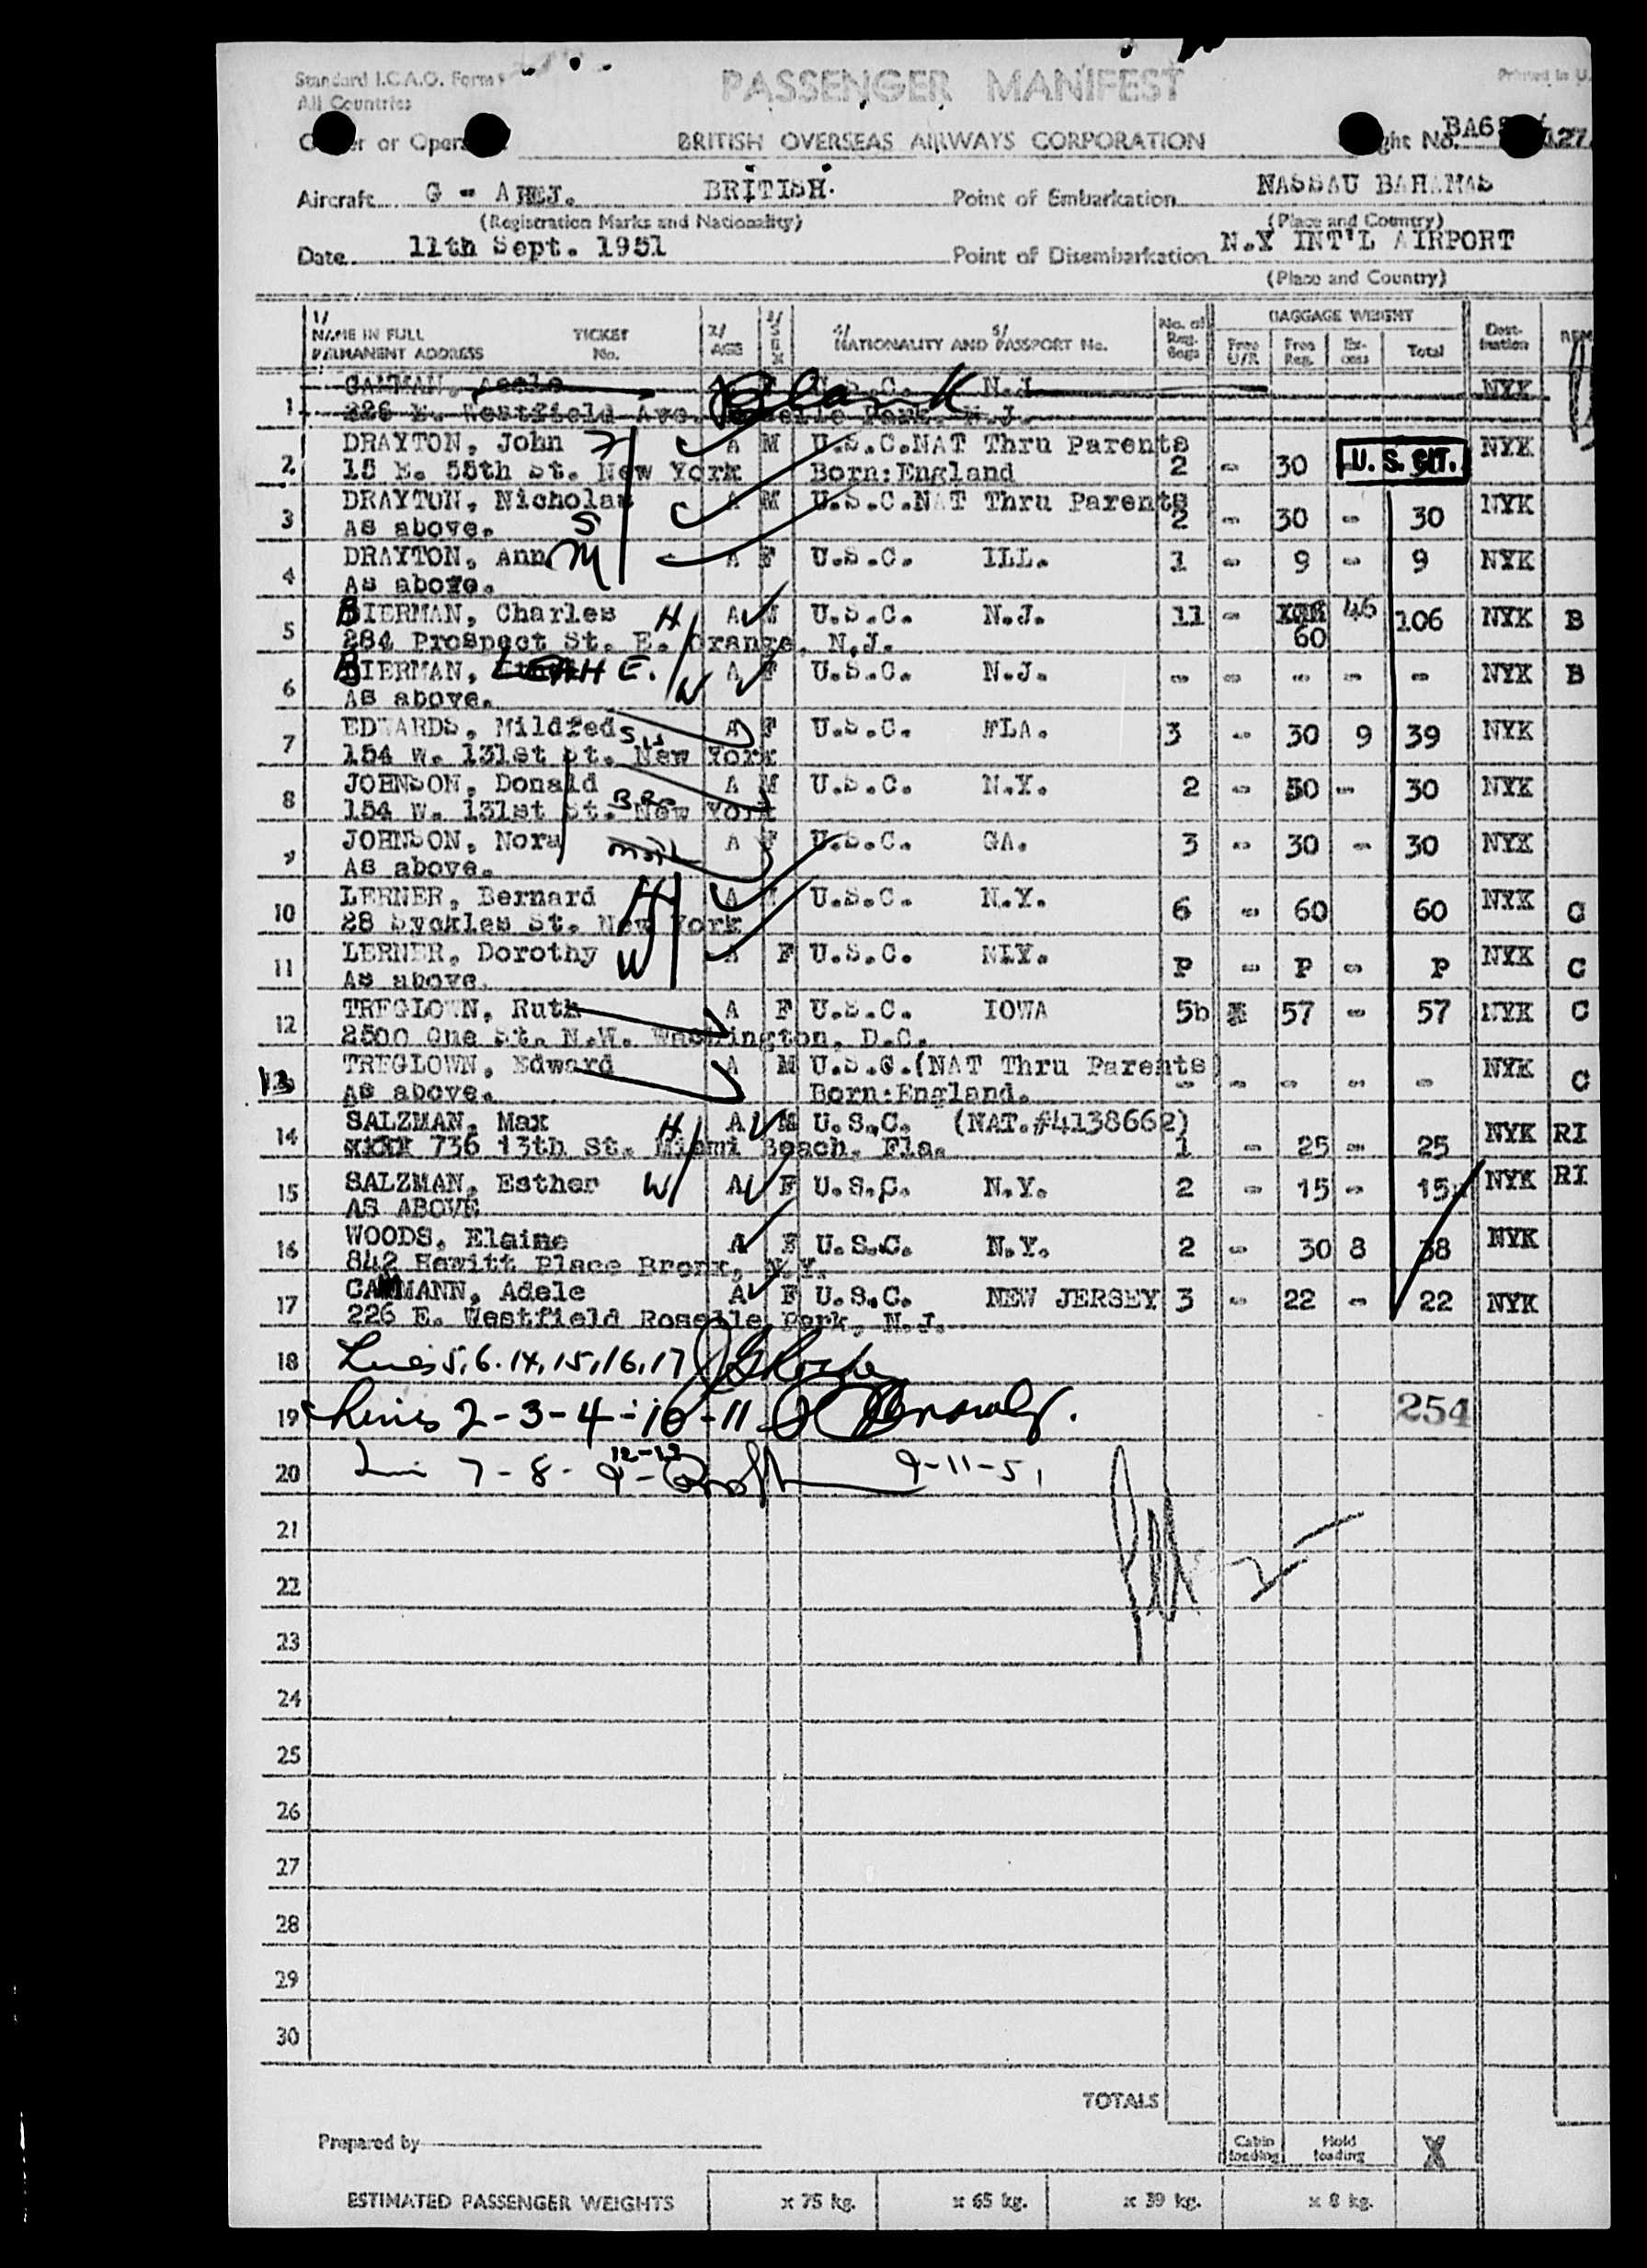 Standard I.C.A.O. Form
All Countries
PASSENGER MANIFEST
Printed in U.
or Oper
BRITISH OVERSEAS AIRWAYS CORPORATION
ght No. BA6 127
Aircraft G - AHEJ. BRITISH. Point of Embarkation NASSAU BAHAMAS
(Registration Marks and Nationality) (Place and Country)
Date 11th Sept. 1951 Point of Disembarkation N.Y INT'L AIRPORT
(Place and Country)
1/ NAME IN FULL PERMANENT ADDRESS TICKET No. 2/ AGE 3/ SEX 4/ NATIONALITY AND 5/ PASSPORT No. No. of Reg. Bags BAGGAGE WEIGHT Free U/R Free Reg. Excess Total Destination REM
1 Adele Blank N.J. NYK
226 E. Westfield Ave. Roselle Park, N.J.
2 DRAYTON, John A M U.S.C.NAT Thru Parents 2 - 30 U. S. CIT. NYK
15 E. 55th St. New York Born:England
3 DRAYTON, Nicholas A M U.S.C.NAT Thru Parents 2 - 30 - 30 NYK
As above. S
4 DRAYTON, Ann M A F U.S.C. ILL. 1 - 9 - 9 NYK
As above.
5 BIERMAN, Charles H A M U.S.C. N.J. 11 - 60 46 106 NYK B
284 Prospect St. E. Orange, N.J.
6 BIERMAN, LEAH E. W A F U.S.C. N.J. - - - - - NYK B
As above.
7 EDWARDS, Mildred A F U.S.C. FLA. 3 - 30 9 39 NYK
154 W. 131st St. New York Sis
8 JOHNSON, Donald A M U.S.C. N.Y. 2 - 30 - 30 NYK
154 W. 131st St. New York Bro
9 JOHNSON, Nora A F U.S.C. GA. 3 - 30 - 30 NYK
As above.
10 LERNER, Bernard H A M U.S.C. N.Y. 6 - 60 60 NYK C
28 Syckles St. New York
11 LERNER, Dorothy W A F U.S.C. N.Y. P - P - P NYK C
As above.
12 TREGLOWN, Ruth A F U.S.C. IOWA 5b 57 - 57 NYK C
2500 Que St. N.W. Washington, D.C.
13 TREGLOWN, Edward A M U.S.C.(NAT Thru Parents) - - - - - NYK C
As above. Born:England.
14 SALZMAN, Max H A M U.S.C. (NAT.#4138662) 1 - 25 - 25 NYK RI
736 13th St. Miami Beach, Fla.
15 SALZMAN, Esther W A F U.S.C. N.Y. 2 - 15 - 15 NYK RI
AS ABOVE
16 WOODS, Elaine A F U.S.C. N.Y. 2 - 30 8 38 NYK
842 Hewitt Place Bronx, N.Y.
17 GAMMANN, Adele A F U.S.C. NEW JERSEY 3 - 22 - 22 NYK
226 E. Westfield Roselle Park, N.J.
18 Lines 5, 6. 14, 15, 16, 17
19 Lines 2-3-4-10-11 254
20 7-8-9- 12-13 9-11-51
21
22
23
24
25
26
27
28
29
30
TOTALS
Prepared by
Cabin loading Hold loading X
ESTIMATED PASSENGER WEIGHTS x 75 kg. x 65 kg. x 39 kg. x 8 kg.